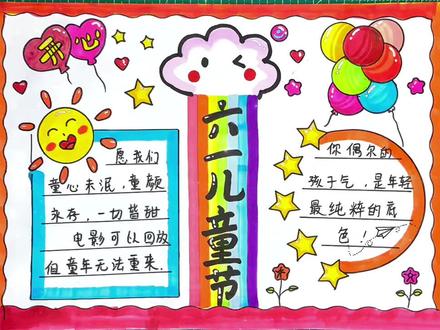 开心
六一儿童节
愿我们
童心未泯，童颜
永存，一切皆甜
电影可以回放
但童年无法重来.
你偶尔的
孩子气，是年轻
最纯粹的底
色！